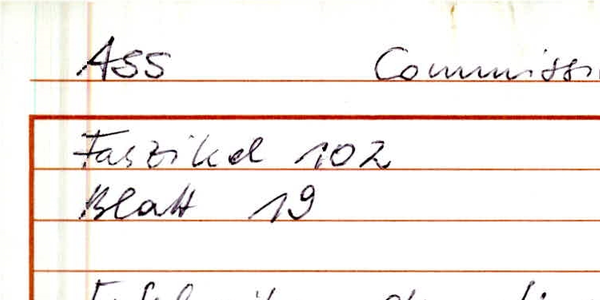 ASS Commissi
Faszikel 102
Blatt 19